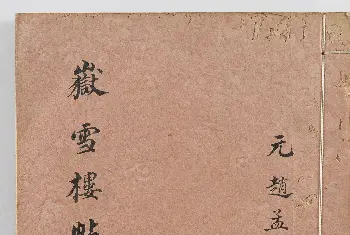 元趙孟
嶽雪樓帖